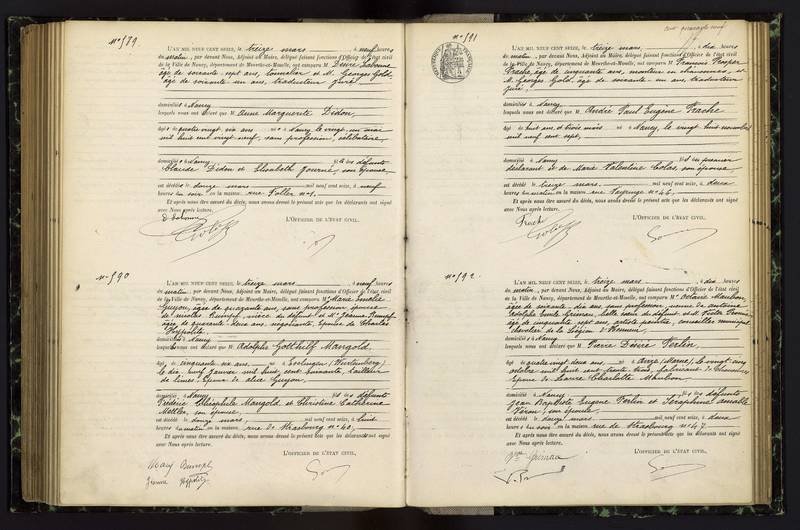 n° 589.
L'AN MIL NEUF CENT SEIZE, le treize mars à neuf heures
du matin, par devant Nous, Adjoint au Maire, délégué faisant fonctions d'Officier de l'état civil
de la Ville de Nancy, département de Meurthe-et-Moselle, ont comparu M. Désiré
âgé de soixante-sept ans, tonnelier et M. Georges Gold,
âgé de soixante un ans, traducteur juré,
domiciliés à Nancy
lesquels nous ont déclaré que M. Anne Marguerite Didon,
âgé de quatre vingt six ans née à Nancy, le vingt un mai
mil huit cent vingt neuf, sans profession, célibataire,
domiciliée à Nancy fille des défunts
Claude Didon et Elisabeth Journé, son épouse,
est décédée le douze mars mil neuf cent seize, à neuf
heures du soir en la maison rue n° 1.
Et après nous être assuré du décès, nous avons dressé le présent acte que les déclarants ont signé
avec Nous après lecture.
L'OFFICIER DE L'ÉTAT CIVIL.
n° 590
L'AN MIL NEUF CENT SEIZE, le treize mars à neuf heures
du matin, par devant Nous, Adjoint au Maire, délégué faisant fonctions d'Officier de l'état civil
de la Ville de Nancy, département de Meurthe-et-Moselle, ont comparu Marie Emélie
Guyon, âgée de quarante ans, sans profession, épouse
de Nicolas Rumpf, nièce du défunt et Jeanne Rumpf
âgée de quarante deux ans, négociante, épouse de Charles
Hippolite,
domiciliés à Nancy
lesquels nous ont déclaré que M. Adolphe Gotthilf Mangold,
âgé de cinquante six ans né à Esslingen (Wurtemberg)
le dix neuf janvier mil huit cent soixante, tailleur
de limes, époux de Alice Guyon,
domicilié à Nancy fils des défunts
Frédéric Théophile Mangold et Christine Catherine
Mettler, son épouse,
est décédé le douze mars, mil neuf cent seize, à huit
heures du matin en la maison rue de Strasbourg n° 40,
Et après nous être assuré du décès, nous avons dressé le présent acte que les déclarants ont signé
avec Nous après lecture.
L'OFFICIER DE L'ÉTAT CIVIL.
Mary Rumpf
Jeanne Hippolite
n° 591
L'AN MIL NEUF CENT SEIZE, le treize mars, à dix heures
du matin, par devant Nous, Adjoint au Maire, délégué faisant fonctions d'Officier de l'état civil
de la Ville de Nancy, département de Meurthe-et-Moselle, ont comparu M. François Prosper
Frache, âgé de cinquante ans, monteur en chaussures, et
M. Georges Gold, âgé de soixante un ans, traducteur
juré,
domiciliés à Nancy,
lesquels nous ont déclaré que M. André Paul Eugène Frache
âgé de huit ans et trois mois né à Nancy, le vingt huit novembre
mil neuf cent sept,
domicilié à Nancy fils du premier
déclarant et de Marie Valentine Colas, son épouse,
est décédé le treize mars, mil neuf cent seize, à deux
heures du matin en la maison rue n° 46.
Et après nous être assuré du décès, nous avons dressé le présent acte que les déclarants ont signé
avec Nous après lecture.
Frache
L'OFFICIER DE L'ÉTAT CIVIL.
n° 592.
L'AN MIL NEUF CENT SEIZE, le treize mars à dix heures
du matin, par devant Nous, Adjoint au Maire, délégué faisant fonctions d'Officier de l'état civil
de la Ville de Nancy, département de Meurthe-et-Moselle, ont comparu Octavie Maubon,
âgée de soixante dix ans, sans profession, veuve de Antoine
Adolphe Emile, belle soeur du défunt et M. Victor Prouvé,
âgé de cinquante sept ans, artiste peintre, conseiller municipal,
chevalier de la Légion d'Honneur,
domiciliés à Nancy
lesquels nous ont déclaré que M. Pierre Désiré Ferlin,
âgé de quatre vingt deux ans né à (Marne), le vingt cinq
octobre mil huit cent trente trois, fabricant de chaussures
époux de Laure Charlotte Maubon
domicilié à Nancy fils des défunts
Jean Baptiste Eugène Ferlin et Séraphine Aimable
son épouse
est décédé le douze mars mil neuf cent seize, à deux
heures du soir en la maison rue de Strasbourg n° 47.
Et après nous être assuré du décès, nous avons dressé le présent acte que les déclarants ont signé
avec Nous après lecture.
L'OFFICIER DE L'ÉTAT CIVIL.